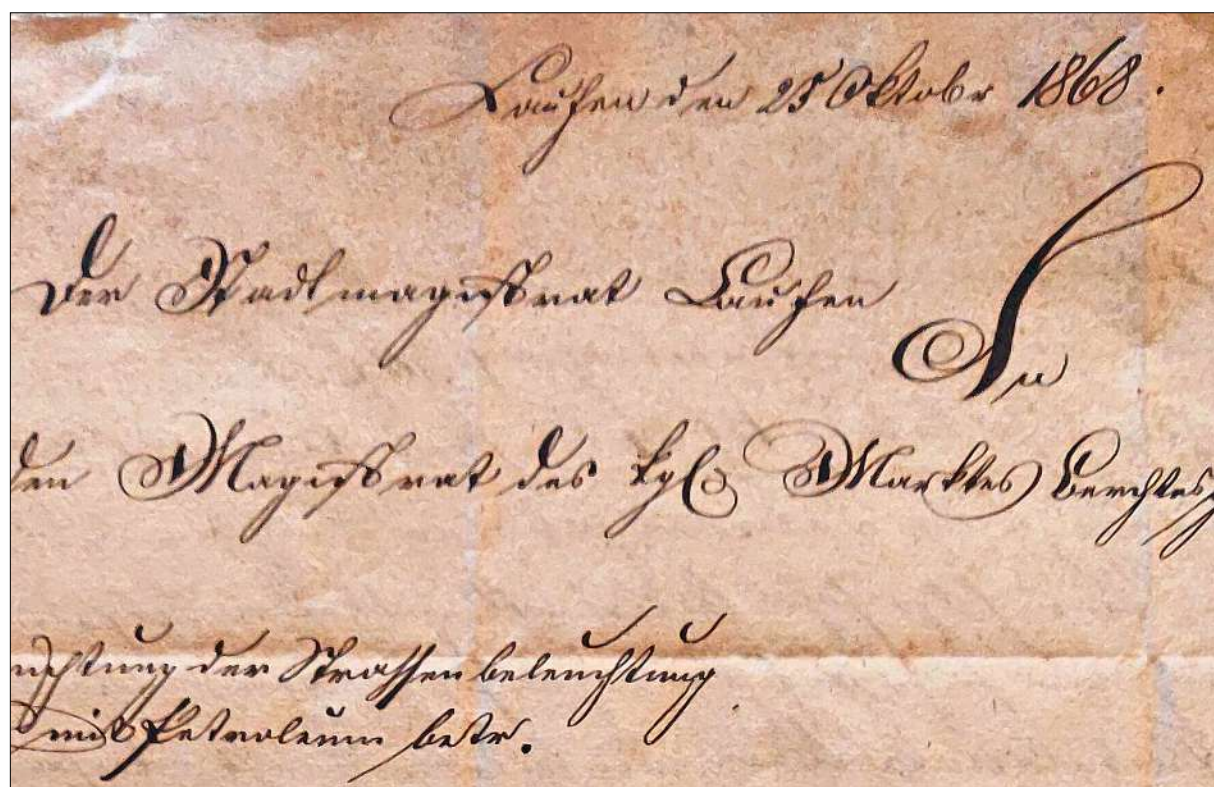 Laufen den 25 Oktobr 1868.
Der Stadtmagistrat Laufen
An
den Magistrat des kgl. Marktes Berchtesg
ichtung der Strassenbeleuchtung
mit Petroleum betr.